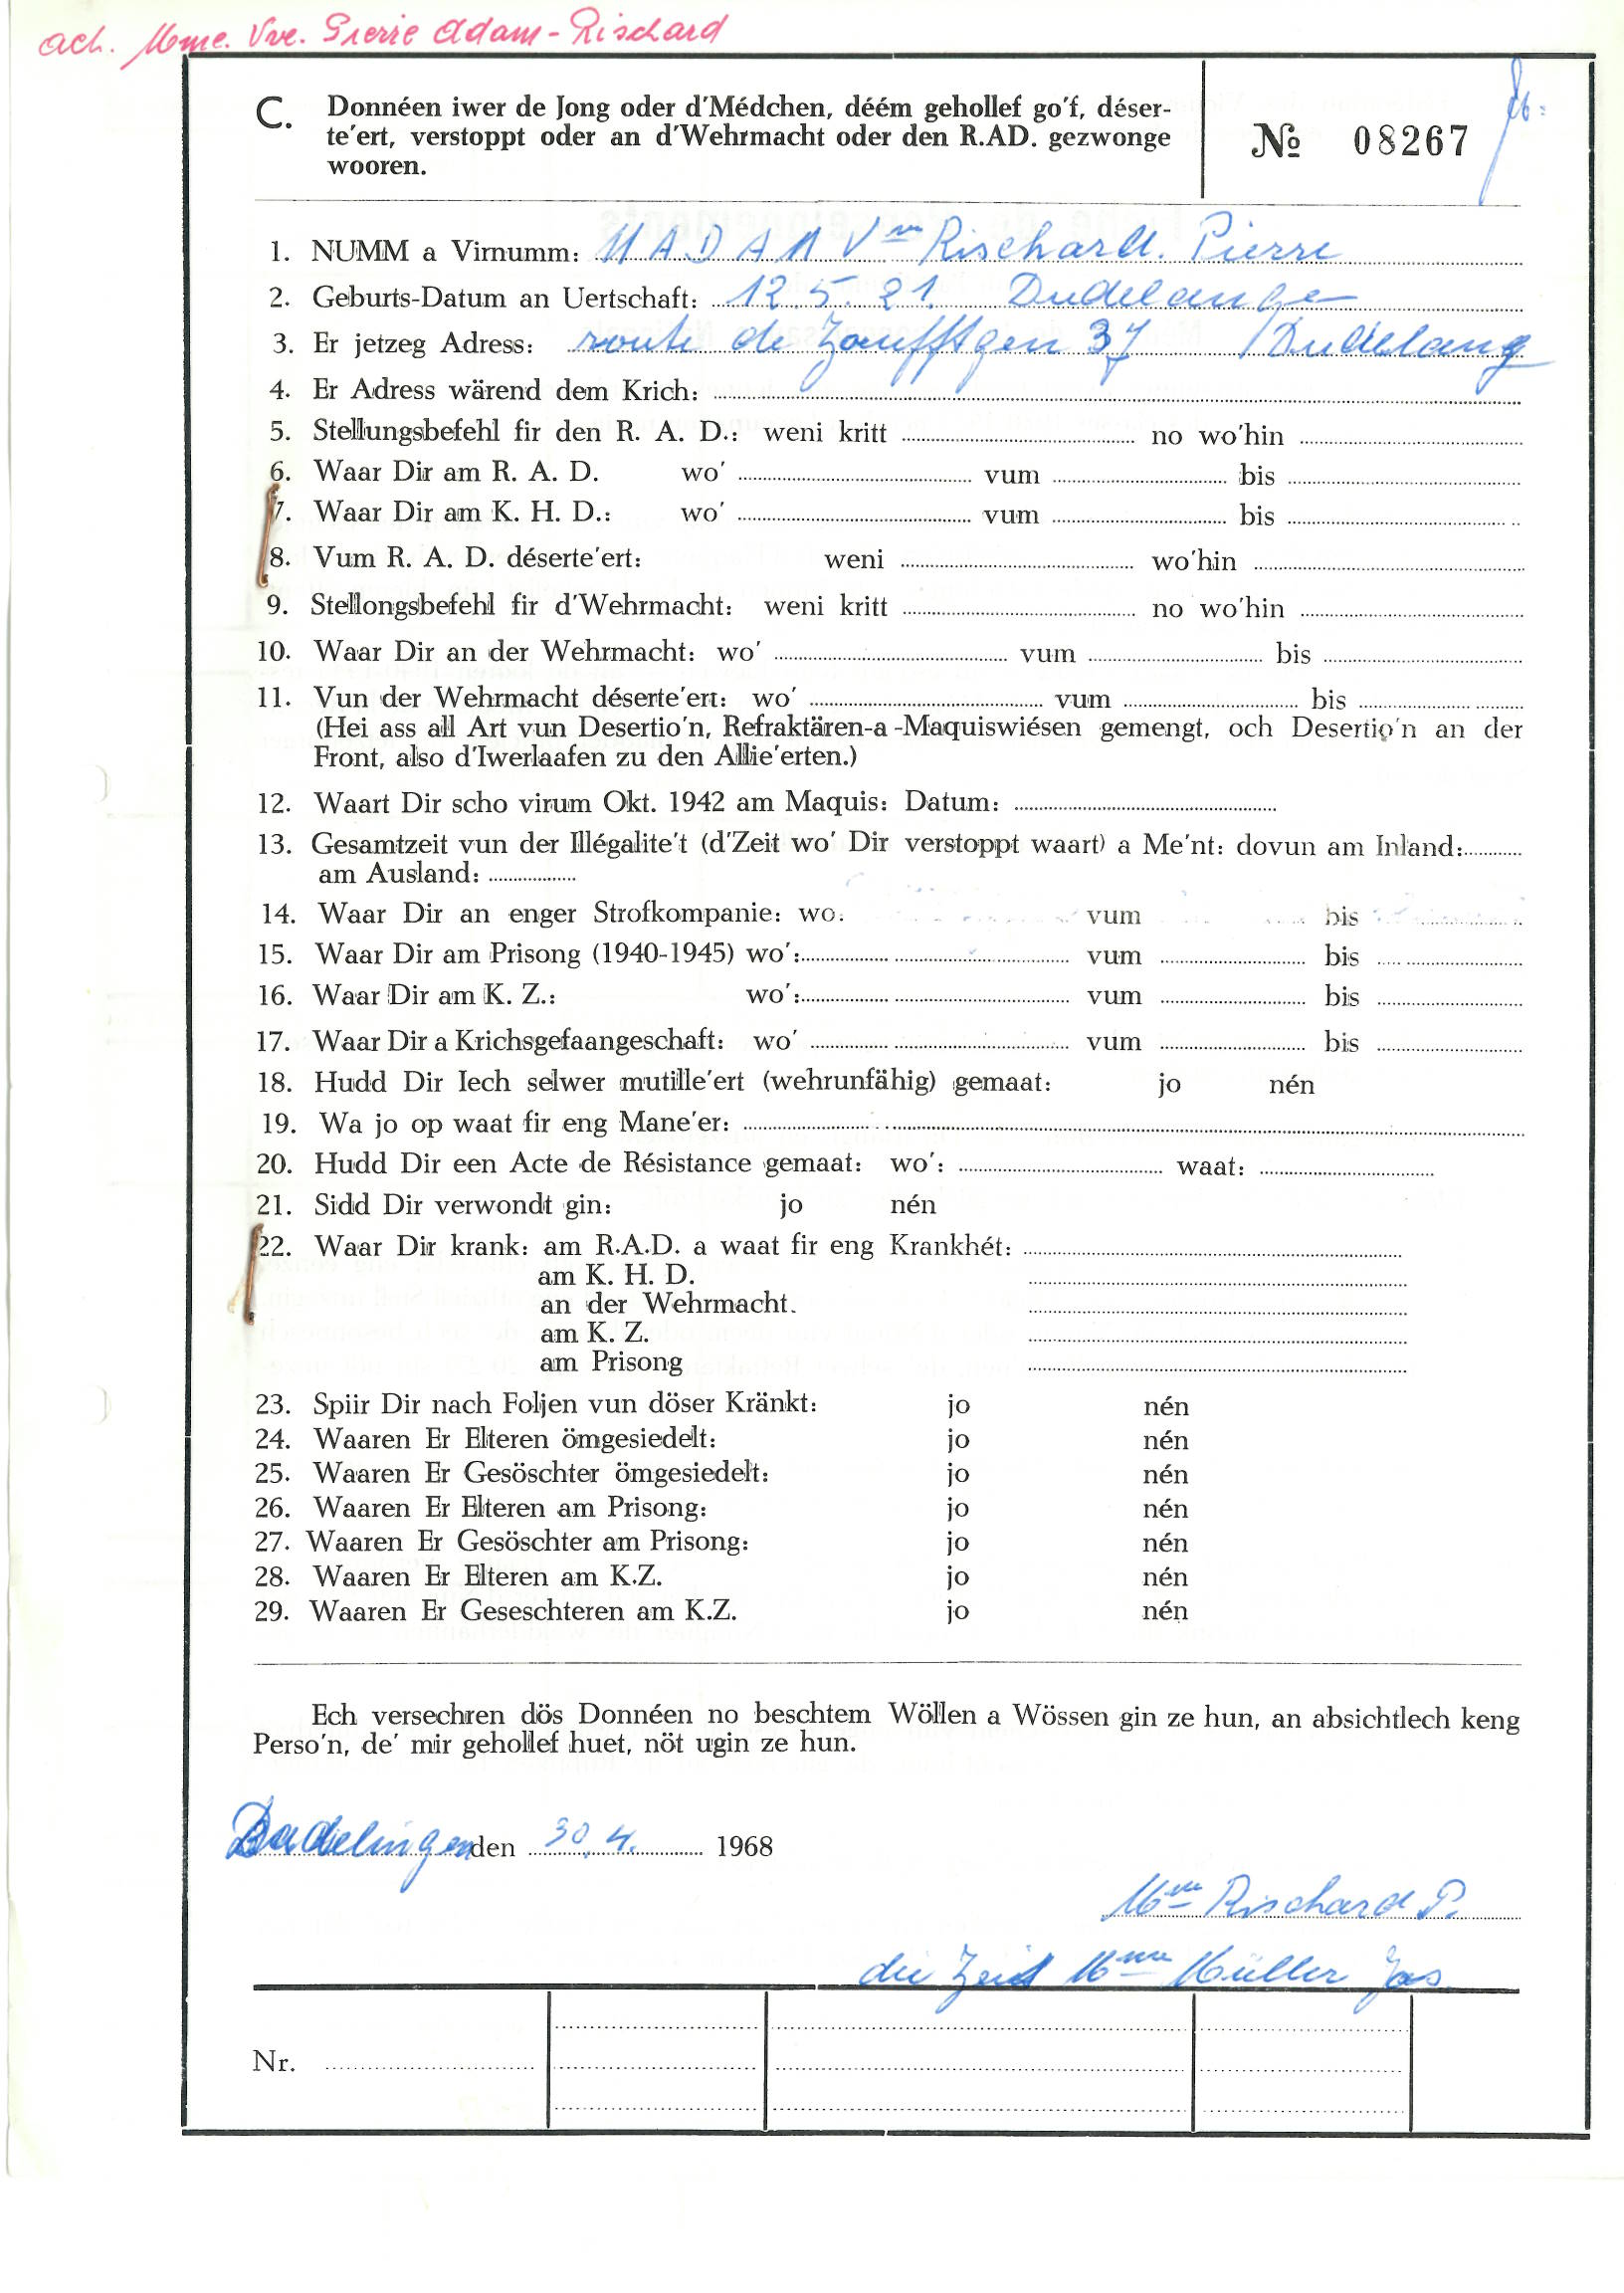 ach. Mme. Vve. Pierre Adam-Rischard
C. Donnéen iwer de Jong oder d'Médchen, déém gehollef go'f, déser-
te'ert, verstoppt oder an d'Wehrmacht oder den R.AD. gezwonge
wooren.
№ 08267
1. NUMM a Virnumm: MADAM Vve Rischard. Pierre
2. Geburts-Datum an Uertschaft: 12.5.21. Dudelange
3. Er jetzeg Adress: route de Zoufftgen 37 Dudelang
4. Er Adress wärend dem Krich:
5. Stellungsbefehl fir den R. A. D.: weni kritt no wo'hin
6. Waar Dir am R. A. D. wo' vum bis
7. Waar Dir am K. H. D.: wo' vum bis
8. Vum R. A. D. déserte'ert: weni wo'hin
9. Stellongsbefehl fir d'Wehrmacht: weni kritt no wo'hin
10. Waar Dir an der Wehrmacht: wo' vum bis
11. Vun der Wehrmacht déserte'ert: wo' vum bis
(Hei ass all Art vun Desertio'n, Refraktären-a-Maquiswiésen gemengt, och Desertio'n an der
Front, also d'Iwerlaafen zu den Allie'erten.)
12. Waart Dir scho virum Okt. 1942 am Maquis: Datum:
13. Gesamtzeit vun der Illégalite't (d'Zeit wo' Dir verstoppt waart) a Me'nt: dovun am Inland:
am Ausland:
14. Waar Dir an enger Strofkompanie: wo: vum bis
15. Waar Dir am Prisong (1940-1945) wo': vum bis
16. Waar Dir am K. Z.: wo': vum bis
17. Waar Dir a Krichsgefaangeschaft: wo' vum bis
18. Hudd Dir Iech selwer mutille'ert (wehrunfähig) gemaat: jo nén
19. Wa jo op waat fir eng Mane'er:
20. Hudd Dir een Acte de Résistance gemaat: wo': waat:
21. Sidd Dir verwondt gin: jo nén
22. Waar Dir krank: am R.A.D. a waat fir eng Krankhét:
am K. H. D.
an der Wehrmacht.
am K. Z.
am Prisong
23. Spiir Dir nach Foljen vun döser Kränkt: jo nén
24. Waaren Er Elteren ömgesiedelt: jo nén
25. Waaren Er Gesöschter ömgesiedelt: jo nén
26. Waaren Er Elteren am Prisong: jo nén
27. Waaren Er Gesöschter am Prisong: jo nén
28. Waaren Er Elteren am K.Z. jo nén
29. Waaren Er Geseschteren am K.Z. jo nén
Ech versechren dös Donnéen no beschtem Wöllen a Wössen gin ze hun, an absichtlech keng
Perso'n, de' mir gehollef huet, nöt ugin ze hun.
Dudelingen den 30.4. 1968
Mme Rischard P.
die Zeit Mme Müller Jos
Nr.